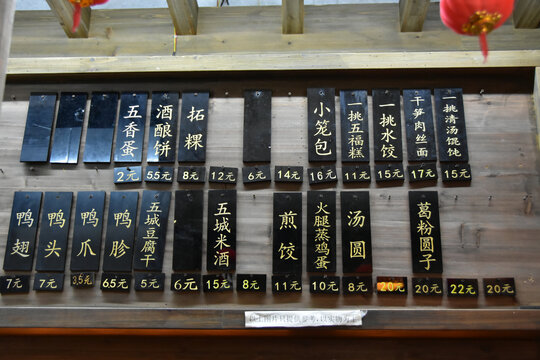 五香蛋
酒酿饼
拓粿
小笼包
一挑五福糕
一挑水饺
干笋肉丝面
一挑清汤馄饨
2元
55元
8元
12元
6元
14元
16元
11元
15元
17元
15元
鸭翅
鸭头
鸭爪
鸭胗
五城豆腐干
五城米酒
煎饺
火腿蒸鸡蛋
汤圆
葛粉圆子
7元
7元
3.5元
6.5元
5元
6元
15元
8元
11元
10元
8元
20元
20元
22元
20元
以上图片只提供参考，以实物为主